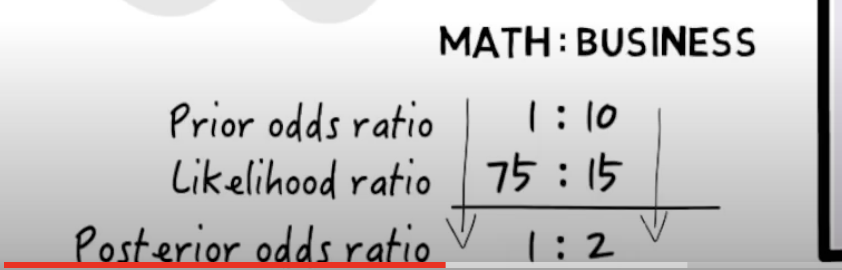 MATH : BUSINESS
Prior odds ratio 1 : 10
Likelihood ratio 75 : 15
Posterior odds ratio 1 : 2